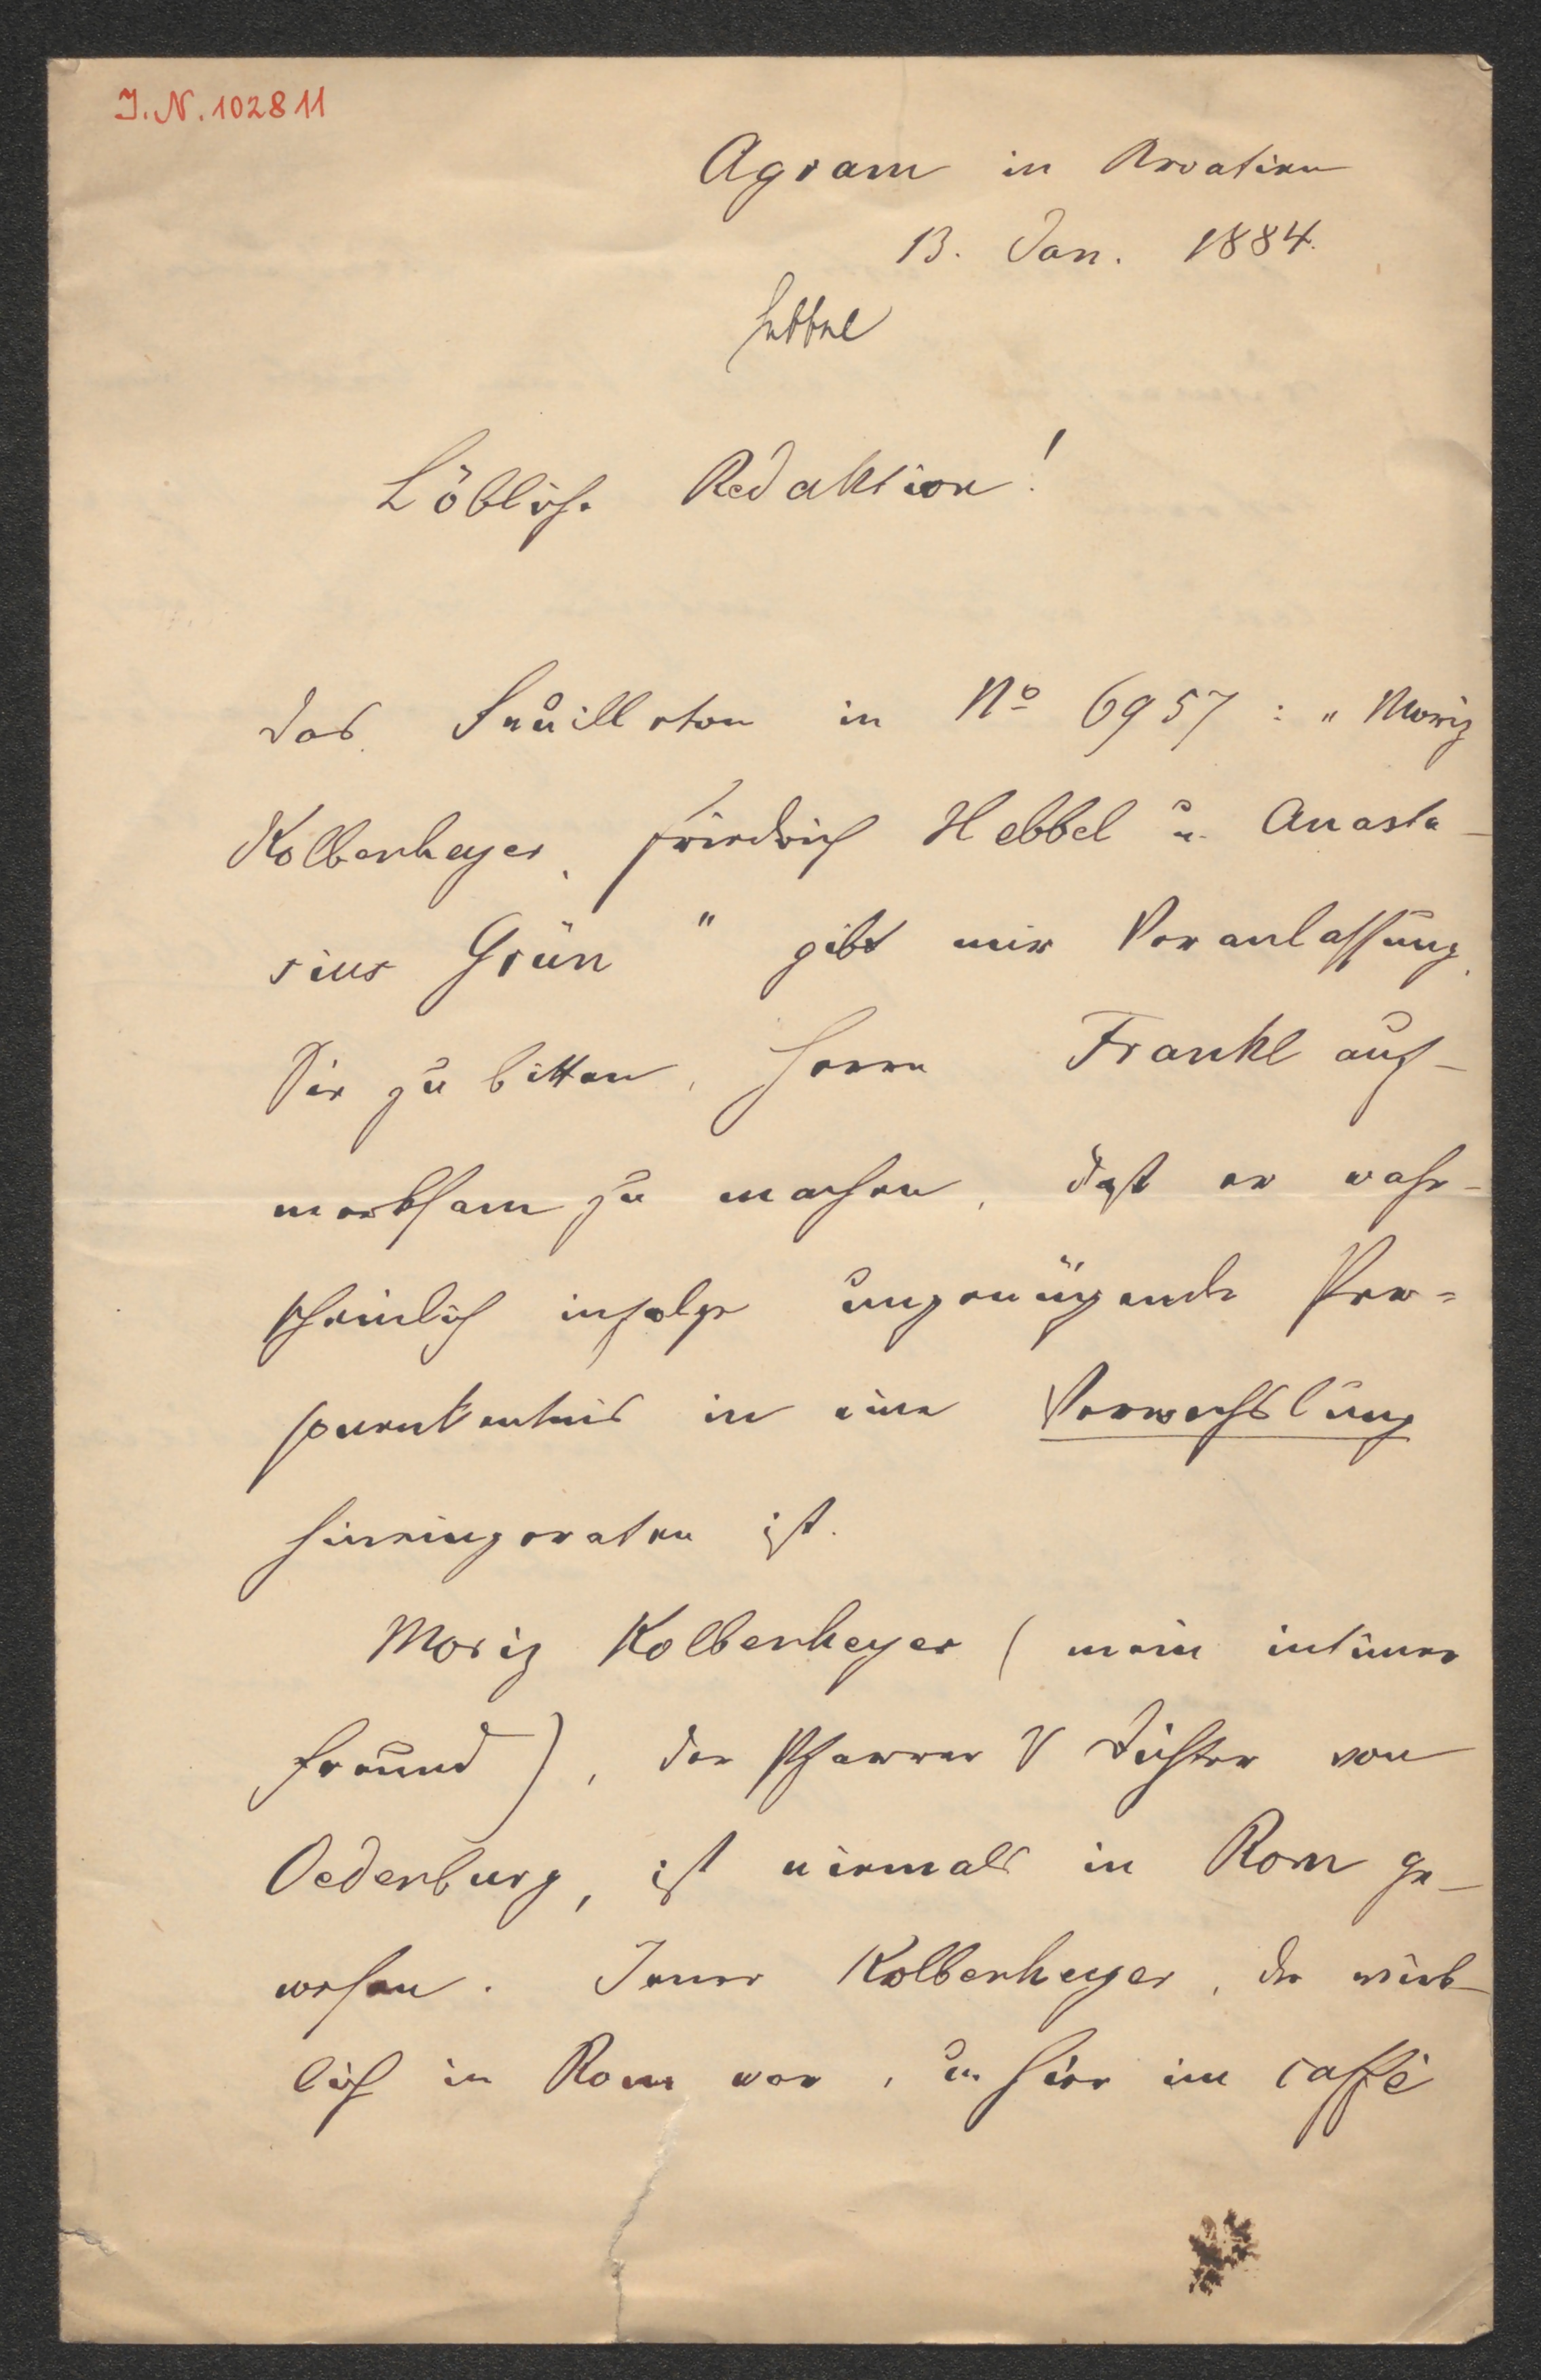 I.N. 102811
Agram in Kroatien
13. Jan. 1884.
Hebbel
Löbliche Redaktion!
das Feuilleton in No 6957: „Moriz
Kolbenheyer, Friedrich Hebbel u. Anasta-
sius Grün" gibt mir Veranlassung,
Sie zu bitten, Herrn Frankl auf-
merksam zu machen, daß er wahr-
scheinlich infolge ungenügende Per=
sonenkentnis in eine Verwechslung
hineingeraten ist.
Moriz Kolbenheyer (mein intimer
Freund), der Pfarrer & Dichter von
Oedenburg, ist niemals in Rom ge-
wesen. Jener Kolbenheyer, der wirk-
lich in Rom war, u. hier im caffè